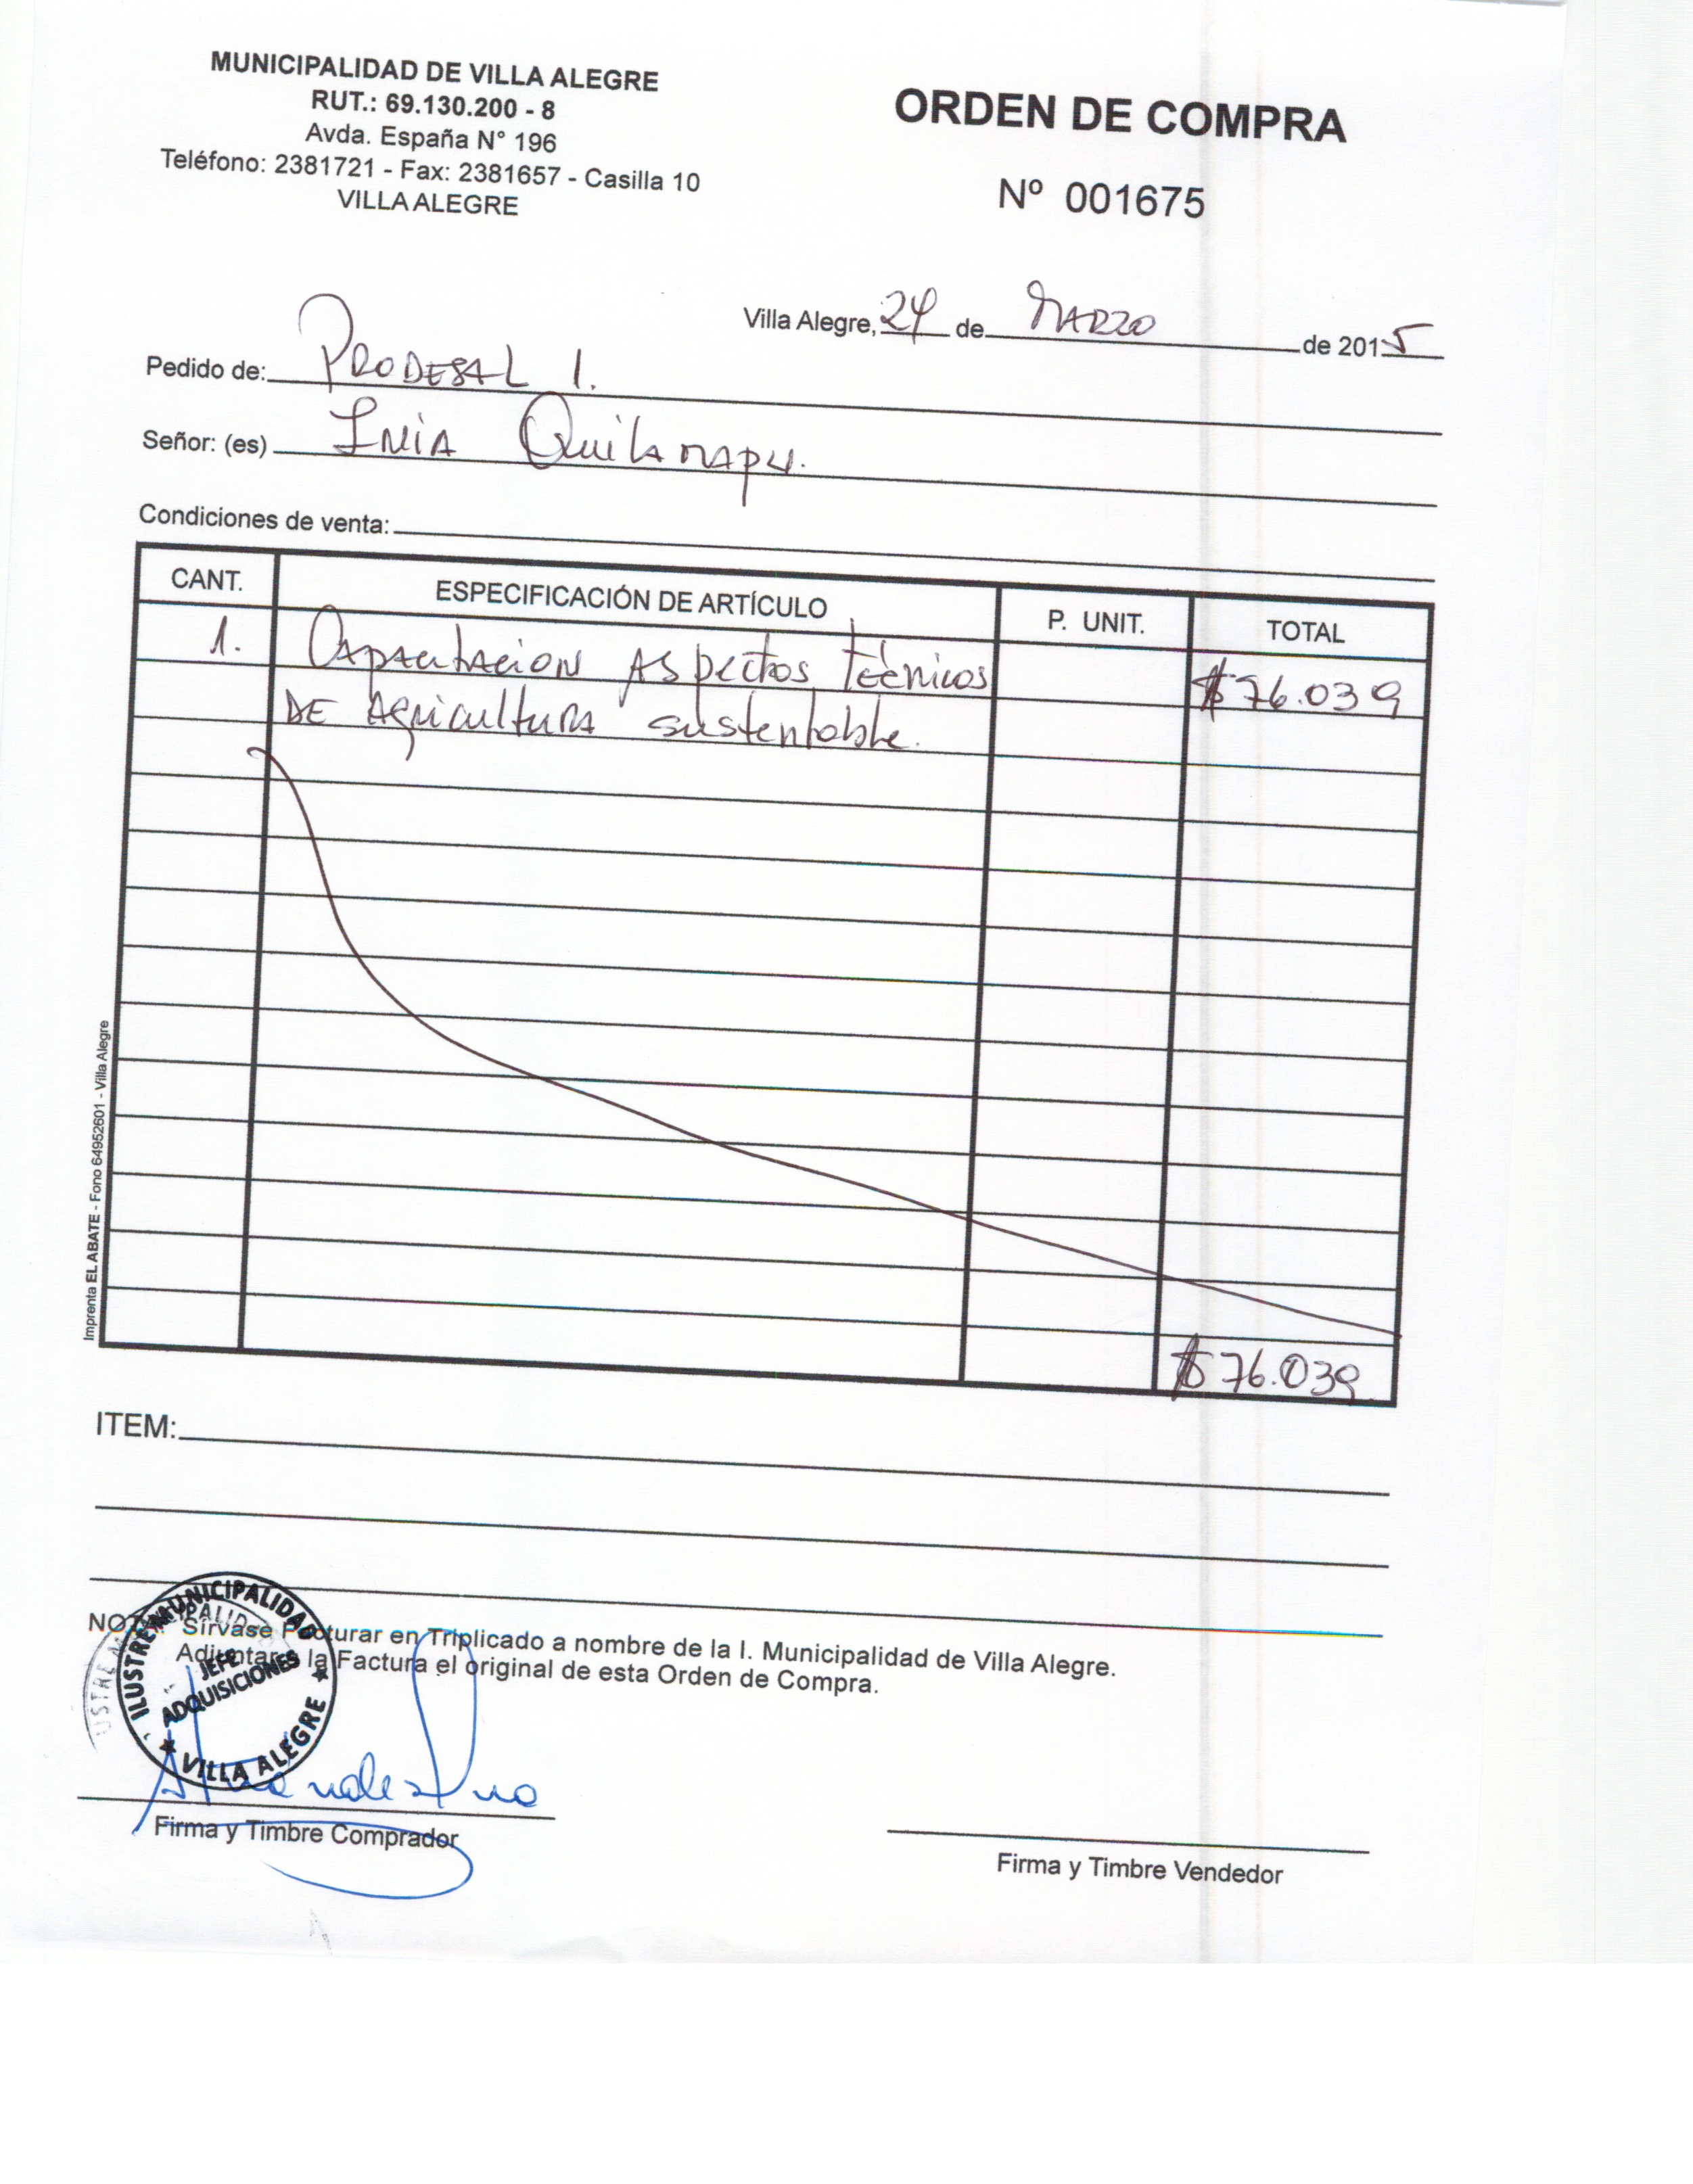 MUNICIPALIDAD DE VILLA ALEGRE
RUT.: 69.130.200 - 8
Avda. España N° 196
Teléfono: 2381721 - Fax: 2381657 - Casilla 10
VILLA ALEGRE
ORDEN DE COMPRA
Nº 001675
Villa Alegre, 24 de MARZO de 2015
Pedido de: PRODESAL 1.
Señor: (es) INIA Quilamapu.
Condiciones de venta:
CANT. ESPECIFICACIÓN DE ARTÍCULO P. UNIT. TOTAL
1. Capacitación Aspectos técnicos $76.039
DE Agricultura sustentable.
$76.039
Imprenta EL ABATE - Fono 64952601 - Villa Alegre
ITEM:
NOTA: Sírvase Facturar en Triplicado a nombre de la I. Municipalidad de Villa Alegre.
Adjuntar a la Factura el original de esta Orden de Compra.
ILUSTRE MUNICIPALIDAD
JEFE
ADQUISICIONES
★ VILLA ALEGRE ★
Firma y Timbre Comprador
Firma y Timbre Vendedor